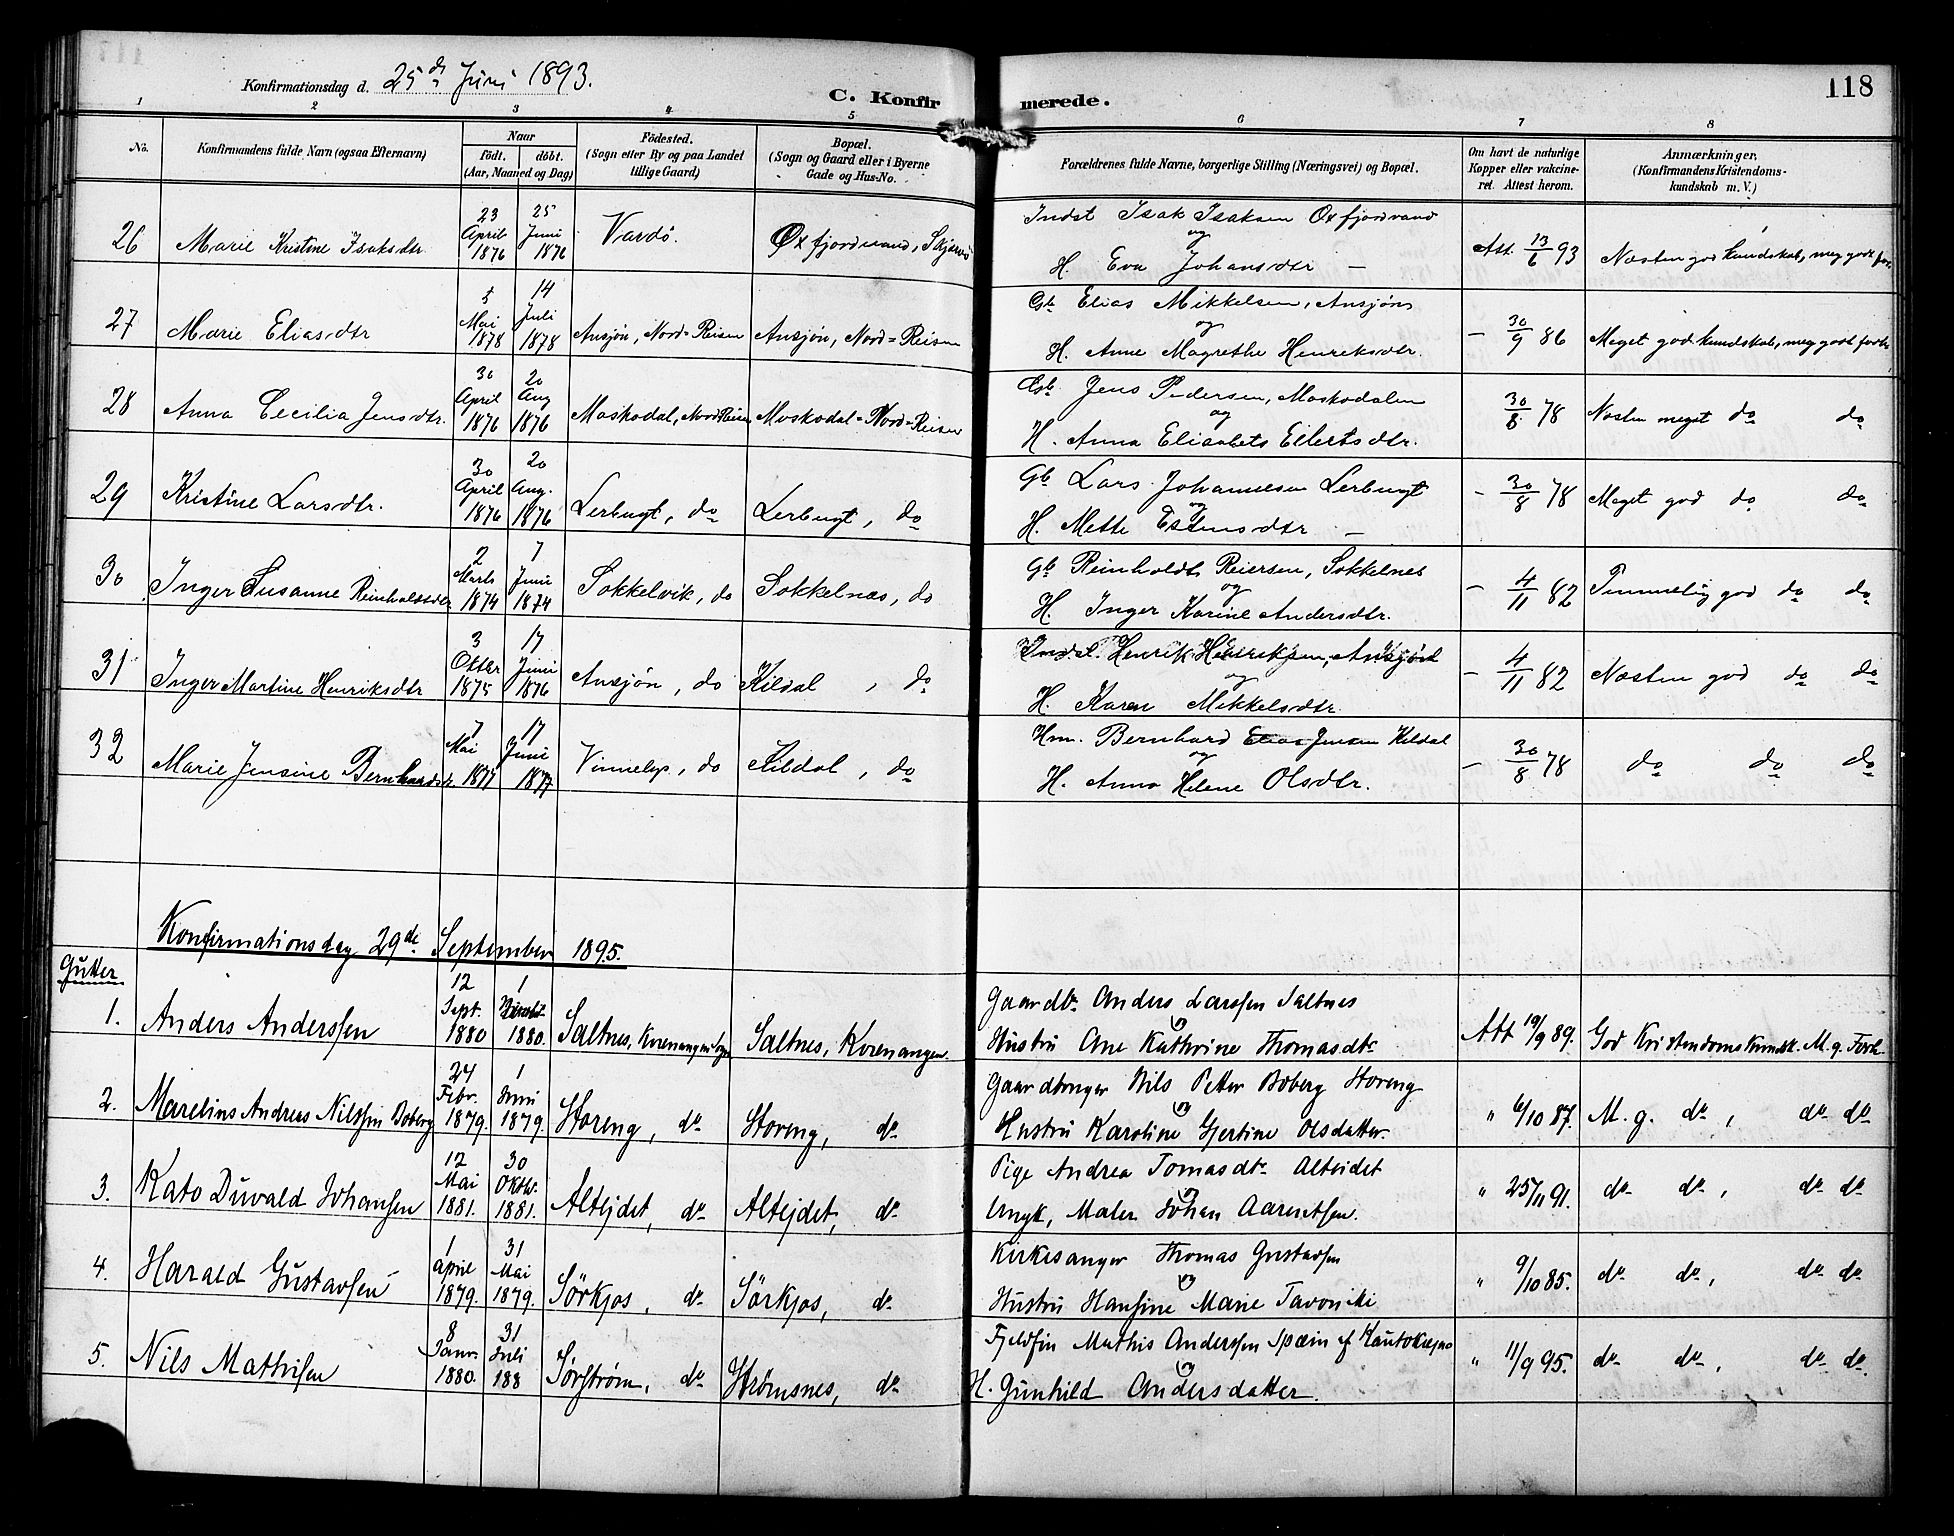 118
Konfirmationsdag d. 25de Juni 1893.
C. Konfirmerede.
1 2 3 4 5 6 7 8
No.
Konfirmandens fulde Navn (ogsaa Efternavn)
Naar
födt. döbt.
(Aar, Maaned og Dag)
Födested.
(Sogn eller By og paa Landet
tillige Gaard)
Bopæl.
(Sogn og Gaard eller i Byerne
Gade og Hus-No.
Forældrenes fulde Navne, borgerlige Stilling (Næringsvei) og Bopæl.
Om havt de naturlige
Kopper eller vakcine-
ret. Attest herom.
Anmærkninger.
(Konfirmandens Kristendoms-
kundskab m. V.)
26 Marie Kristine Isaksdtr. 23 April 1876 25 Juni 1876 Vardö. Oxfjordvand, Skjærvö Indst Isak Isaksen Oxfjordvand og H. Eva Johansdtr — Att. 13/6 93 Næsten god kundskab, meg godt for.
27 Marie Eliasdtr 5 Mai 1878 14 Juli 1878 Ansjön, Nord-Reisen Ansjön, Nord-Reisen Gb Elias Mikkelsen, Ansjön og H. Anne Magrethe Henriksdtr. - 30/9 86 Meget god kundskab, meg godt forh
28 Anna Cecilia Jensdtr. 30 April 1876 20 Aug 1876 Moskodal, Nord Reisen Moskodal-Nord-Reisen Gb. Jens Pedersen, Moskodalen og H. Anna Elisabets Eilertsdtr. 30/8 78 Næsten meget do do
29 Kristine Larsdtr. 30 April 1876 20 Aug. 1876 Lerbugt, do Lerbugt, do Gb Lars Johannesen Lerbugt og H. Mette Estensdtr — - 30/8 78 Meget god do do
30 Inger Susanne Reinholdsdtr 2 Marts 1874 7 Juni 1874 Sokkelvik, do Sokkelnas, do Gb Reinholdt Reiersen, Sokkelnes og H. Inger Karine Andersdtr. - 4/11 82 Temmelig god do do
31 Inger Martine Henriksdtr 3 Oktbr 1875 17 Juni 1876 Ansjön, do Kildal, do Indst. Henrik Henriksen, Ansjön og H. Karen Mikkelsdtr. - 4/11 82 Næsten god do do
32 Marie Jensine Bernhardsdtr. 7 Mai 1877 17 Juni 1877 Vinnelys, do Kildal, do Hm. Bernhard Elias Jensen Kildal og H. Anna Helene Olsdtr. - 30/8 78 do do do
Konfirmationsdag 29de September 1895.
Gutter
1. Anders Anderssen 12 Sept. 1880 1 1880. Saltnes, Kvenangen sogn Saltnes, Kvenangen. Gaardbr. Anders Larssen Saltnes og Hustru Ane Kathrine Thomasdtr Att 19/9 89. God Kristendomskundsk. M. g. Forh.
2. Marelius Andreas Nilssen Boberg 24 Febr. 1879. 1 Juni 1879. Storeng, do Storeng, do Gaardbruger Nils Petter Boberg Storeng og Hustru Karoline Gjertine Olsdatter. " 6/10 87. M. g. do, do do
3. Kato Duvald Johansen 12 Mai 1881. 30 Oktbr. 1881. Alteidet, do Alteidet, do Pige Andrea Tomasdtr Alteidet og Ungk, Maler Johan Aarentsen. " 25/11 91. do do, do do
4. Harald Gustavsen 1 April 1879. 31 Mai 1879. Sörkjos, do Sörkjos, do Kirkesanger Thomas Gustavsen og Hustru Hansine Marie Tavoniki " 9/10 85. do do, do do
5. Nils Mathisen 8 Janr. 1880. 31 Juli 188 Sørstrøm, do Strömsnes, do Fjeldfin Mathis Anderssen Spæin af Kautokeino og H. Gunhild Andersdatter. " 11/9 95. do do, do do.